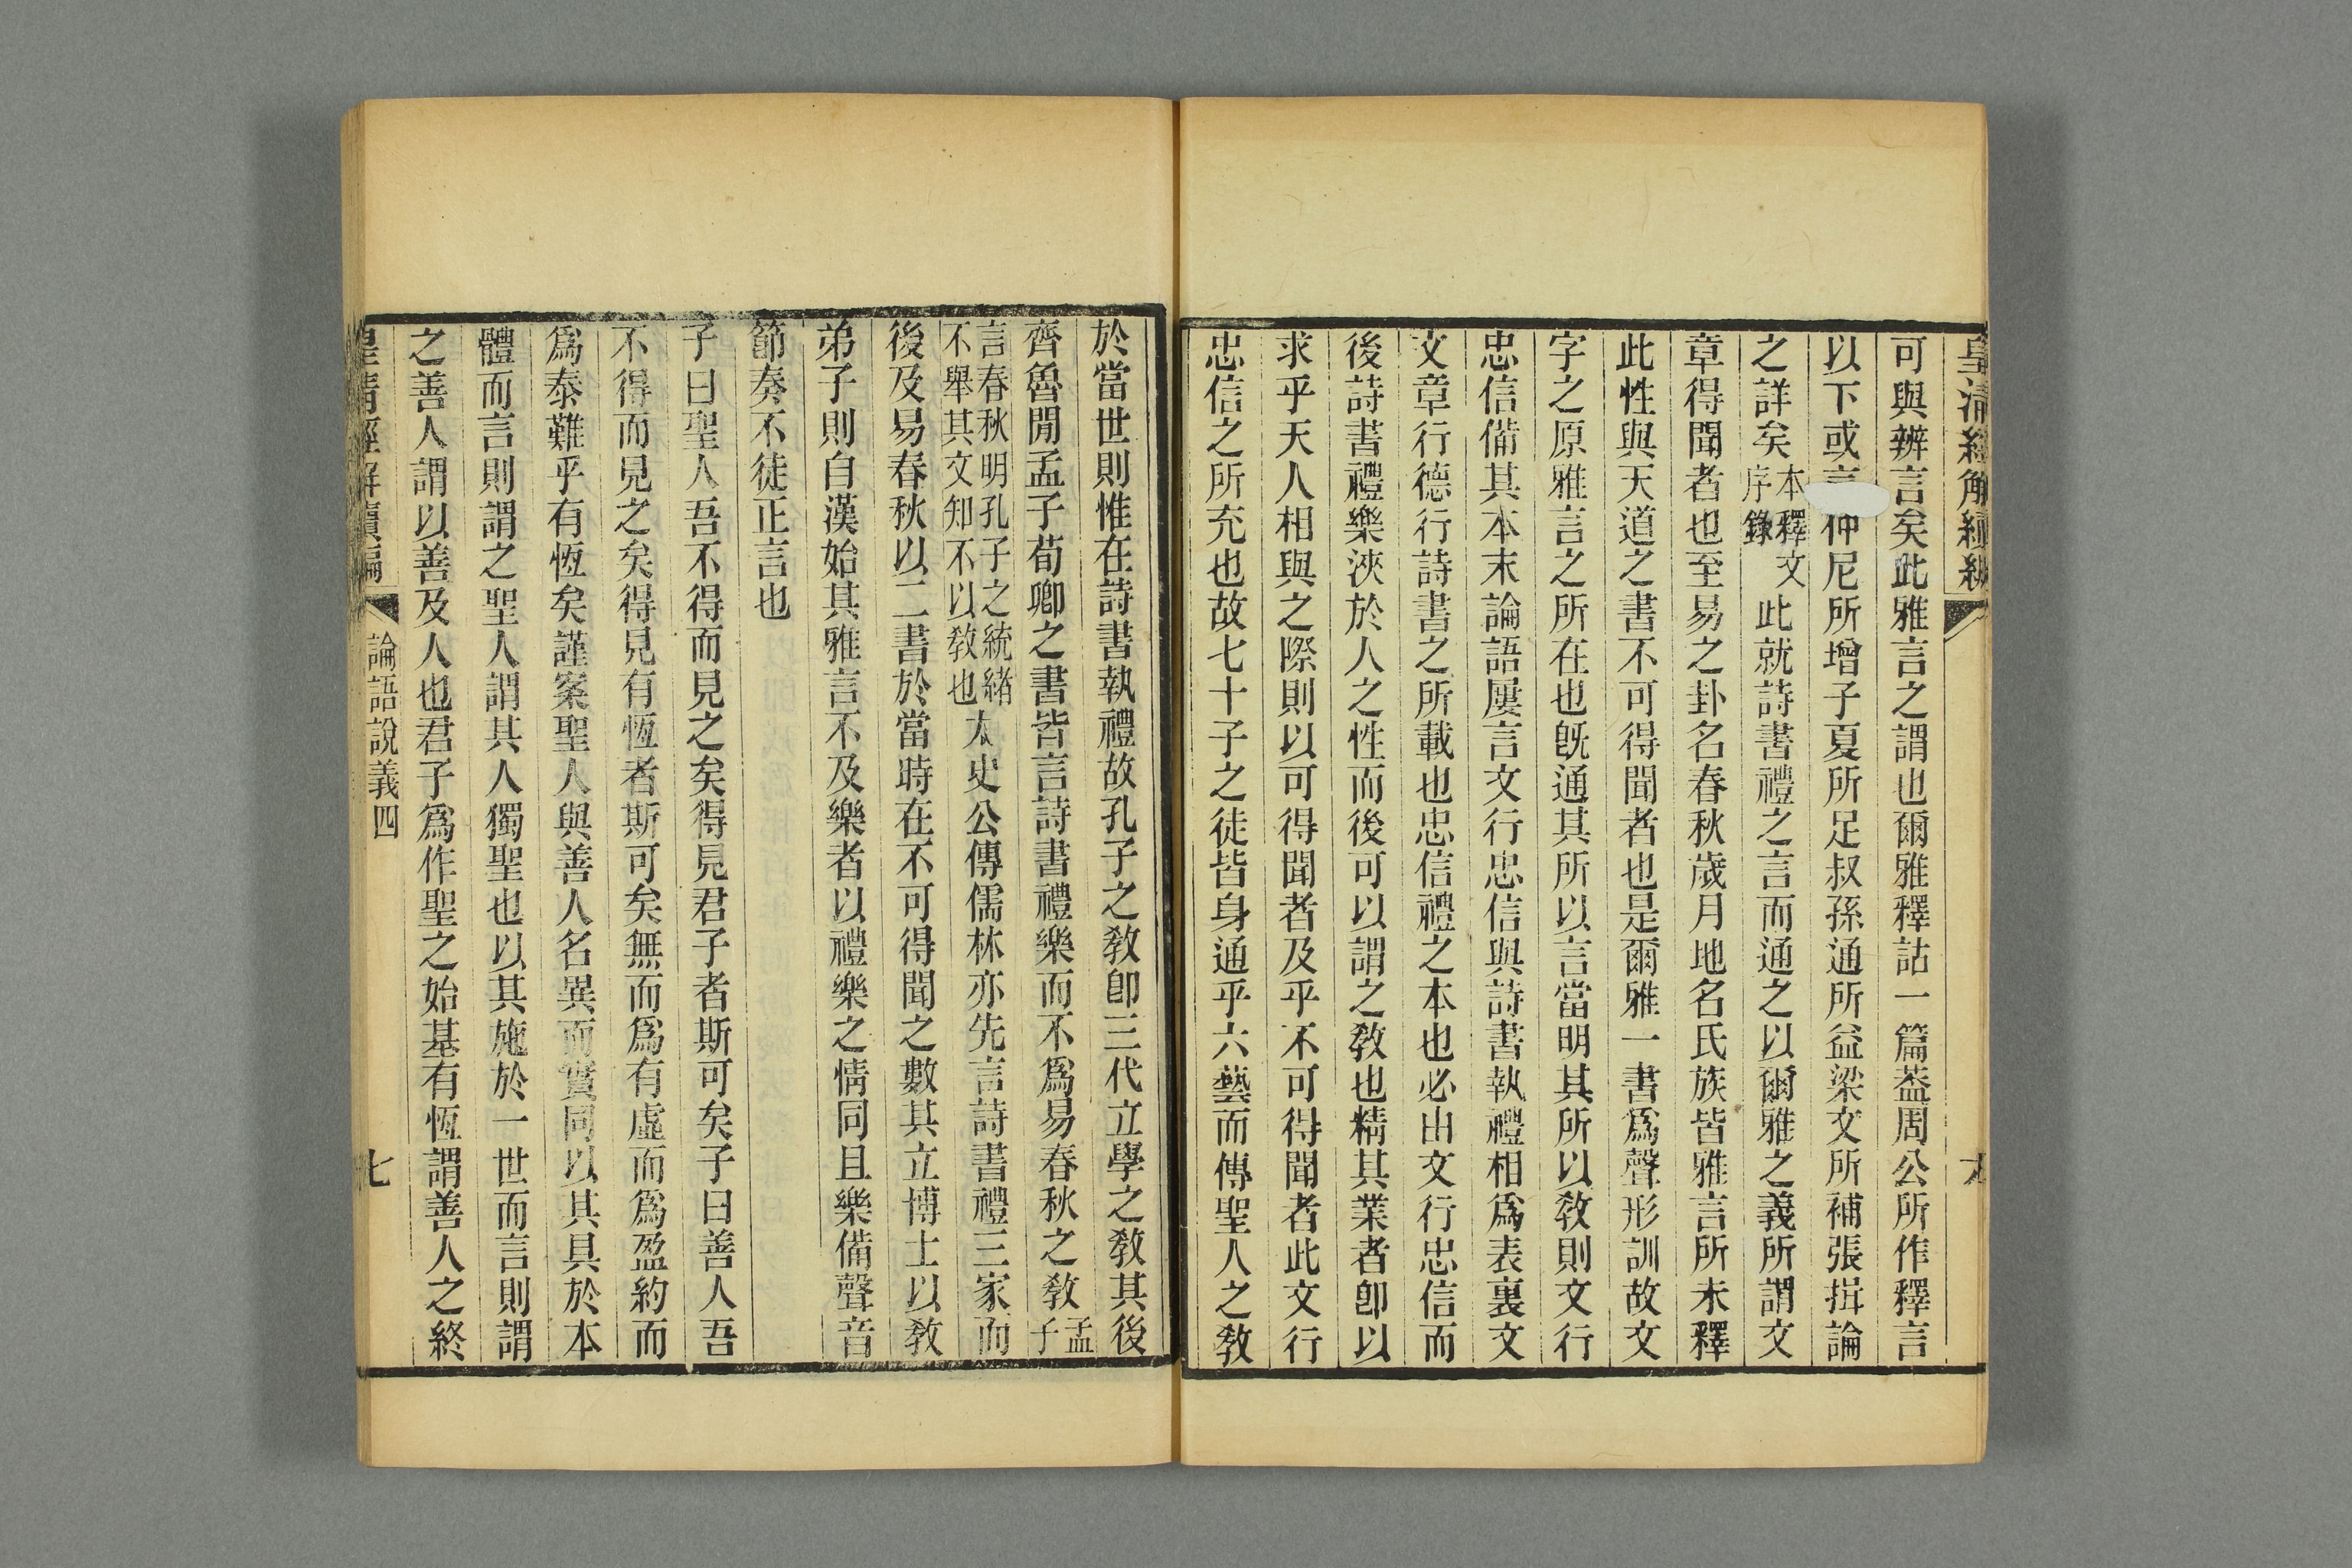 皇清經解續編
可與辨言矣此雅言之謂也爾雅釋詁一篇葢周公所作釋言
以下或言仲尼所增子夏所足叔孫通所益梁文所補張揖論
之詳矣
本釋文
序錄
此就詩書禮之言而通之以爾雅之義所謂文
章得聞者也至易之卦名春秋歲月地名氏族皆雅言所未釋
此性與天道之書不可得聞者也是爾雅一書爲聲形訓故文
字之原雅言之所在也旣通其所以言當明其所以敎則文行
忠信備其本末論語屢言文行忠信與詩書執禮相爲表裏文
文章行德行詩書之所載也忠信禮之本也必由文行忠信而
後詩書禮樂浹於人之性而後可以謂之敎也精其業者卽以
求乎天人相與之際則以可得聞者及乎不可得聞者此文行
忠信之所充也故七十子之徒皆身通乎六藝而傳聖人之敎
於當世則惟在詩書執禮故孔子之敎卽三代立學之敎其後
齊魯閒孟子荀卿之書皆言詩書禮樂而不爲易春秋之敎
孟
子
言春秋明孔子之統緒
不舉其文知不以敎也
太史公傳儒林亦先言詩書禮三家而
後及易春秋以二書於當時在不可得聞之數其立博士以敎
弟子則自漢始其雅言不及樂者以禮樂之情同且樂備聲音
節奏不徒正言也
子曰聖人吾不得而見之矣得見君子者斯可矣子曰善人吾
不得而見之矣得見有恆者斯可矣無而爲有虛而爲盈約而
爲泰難乎有恆矣謹案聖人與善人名異而實同以其具於本
體而言則謂之聖人謂其人獨聖也以其施於一世而言則謂
之善人謂以善及人也君子爲作聖之始基有恆謂善人之終
皇清經解續編
論語說義四
七